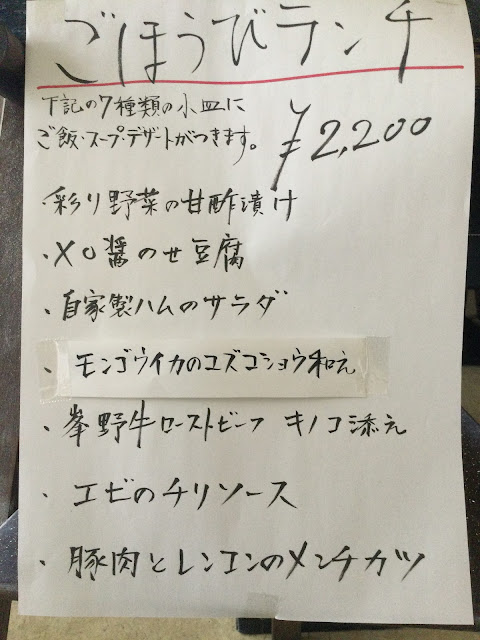 ごほうびランチ
下記の7種類の小皿に
ご飯・スープ・デザートがつきます。
¥2,200
・彩り野菜の甘酢漬け
・XO醤のせ豆腐
・自家製ハムのサラダ
・モンゴウイカのユズコショウ和え
・峯野牛ローストビーフ キノコ添え
・エビのチリソース
・豚肉とレンコンのメンチカツ